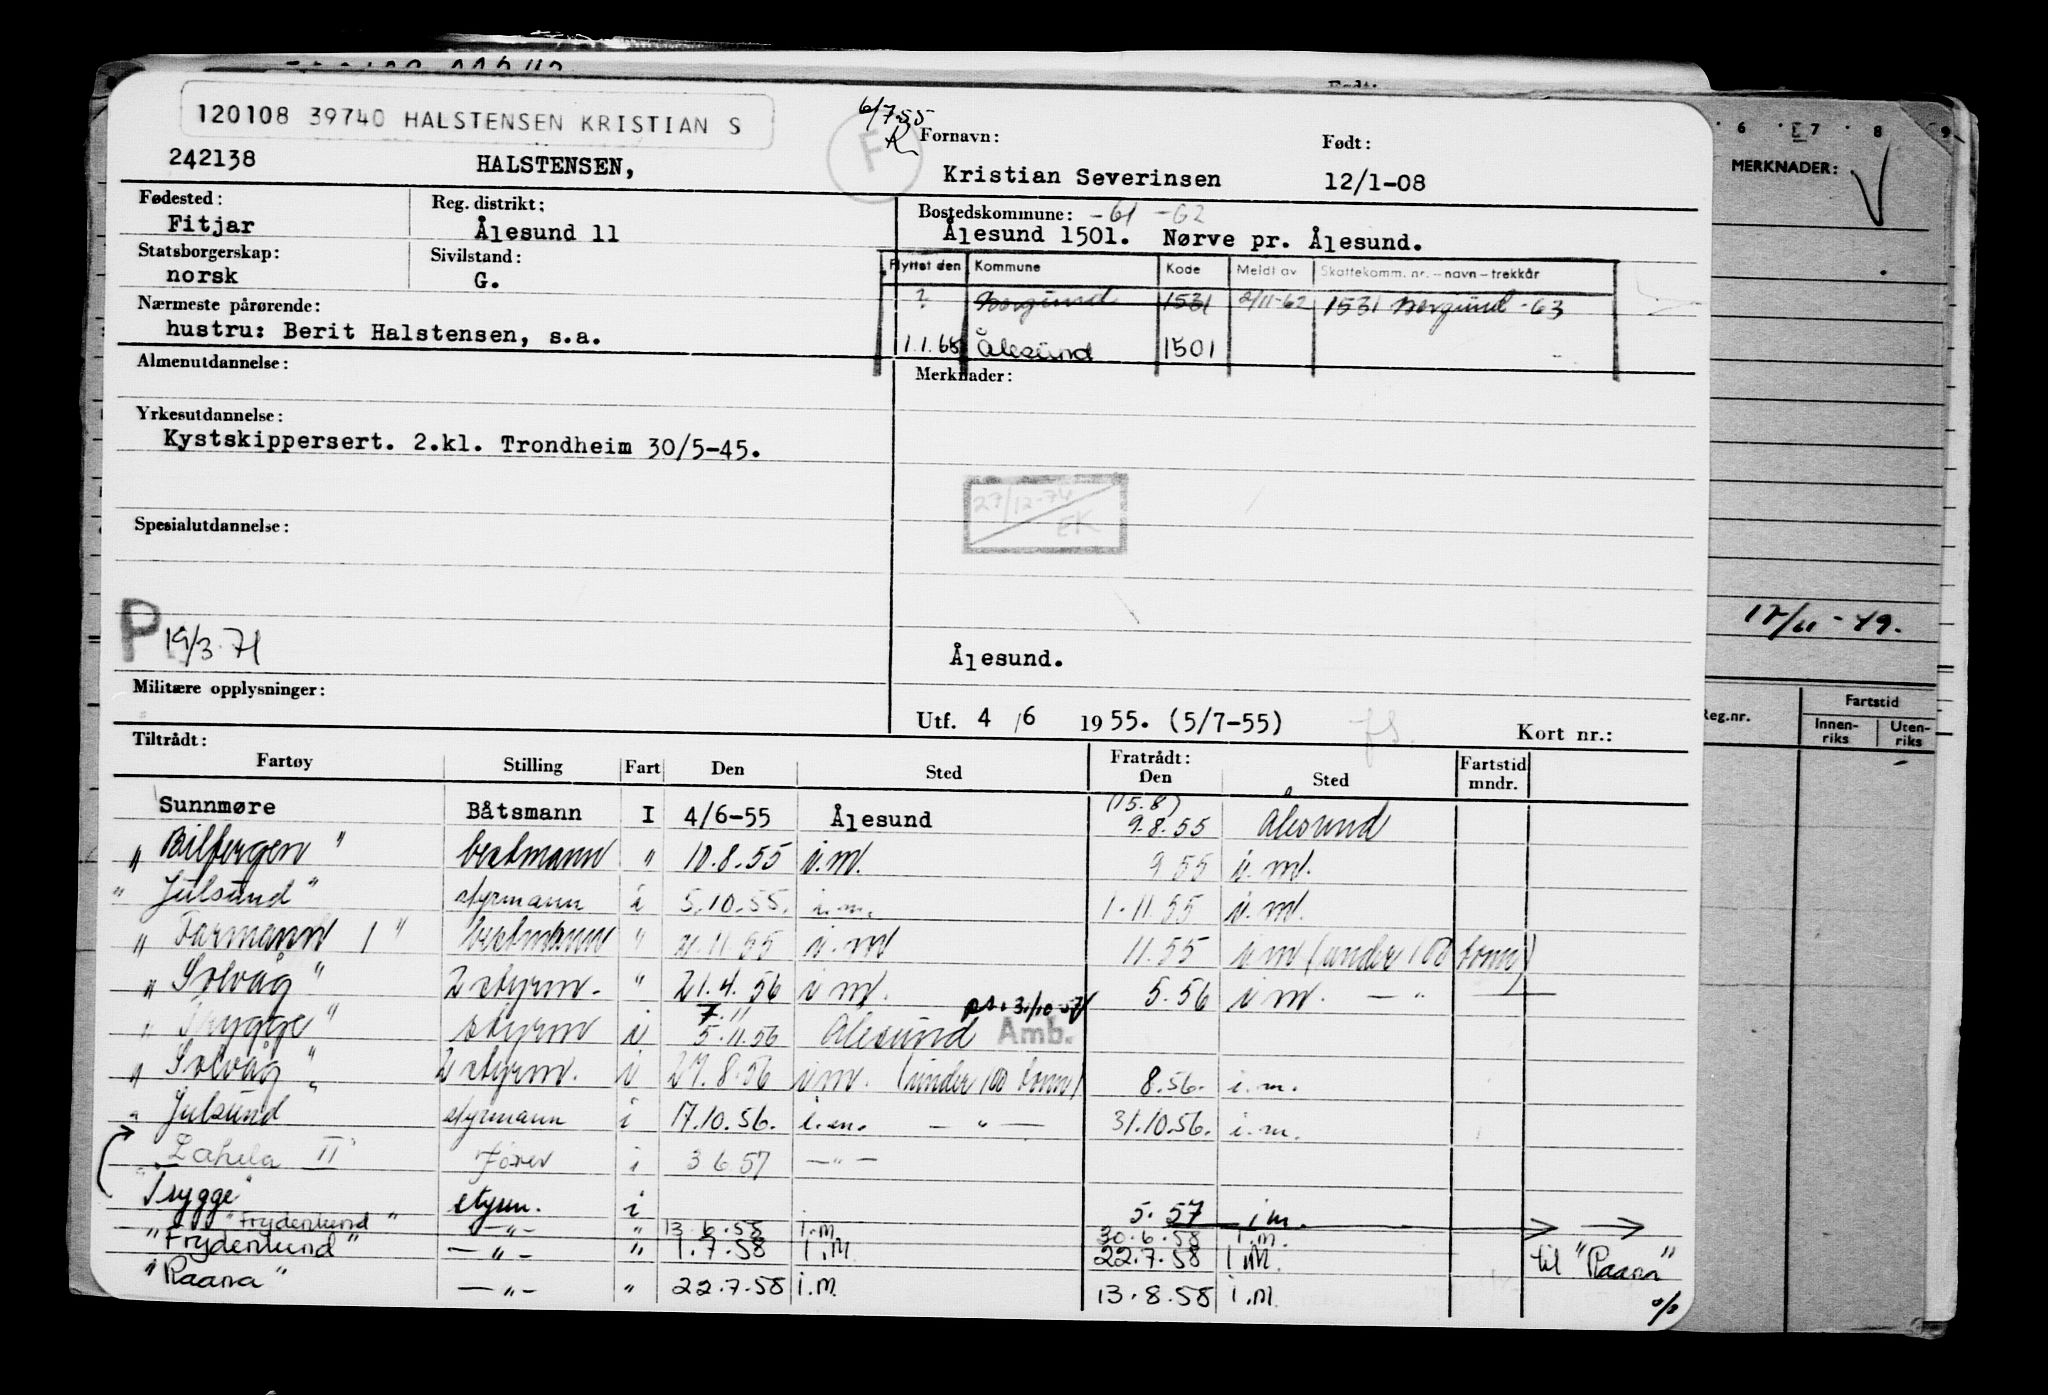 120108 39740 HALSTENSEN KRISTIAN S
6/7-55
F
242138 HALSTENSEN,
Fornavn: Født:
Kristian Severinsen 12/1-08
Fødested: Reg. distrikt:
Fitjar Ålesund 11
Bostedskommune: -61 -62
Ålesund 1501. Nørve pr. Ålesund.
Statsborgerskap: Sivilstand:
norsk G.
Flyttet den Kommune Kode Meldt av Skattekomm. nr. - navn - trekkår
? Borgund 1531 2/11-62 1531 Borgund -63
1.1.68 Ålesund 1501
Nærmeste pårørende:
hustru: Berit Halstensen, s.a.
Almenutdannelse:
Merknader:
Yrkesutdannelse:
Kystskippersert. 2.kl. Trondheim 30/5-45.
27/12-74
EK
Spesialutdannelse:
P 19/3.71
Ålesund.
Militære opplysninger:
Utf. 4 /6 1955. (5/7-55) Kort nr.:
Tiltrådt: Fratrådt:
Fartøy Stilling Fart Den Sted Den Sted Fartstid mndr.
Sunnmøre Båtsmann I 4/6-55 Ålesund (15.8) 9.8.55 Ålesund
" Bilfergen " bestmann " 10.8.55 i.m. 9 55 i.m.
" Julsund " styrmann i 5.10.55. i.m. 1.11.55 i.m.
" Farmann I " bestmann " 11.55 i.m 11.55 i m (under 100 tonn)
" Solvåg " 2 styrm. " 21.4.56 i m. 5.56 i m. — " —
" Trygge " styrm i 7.11 5.11.56 Ålesund Amb.
" Solvåg " 2 styrm. i 27.8.56 i m. (under 100 tonn) 8.56. i.m.
" Julsund styrmann i 17.10.56. i.m. — " — 31.10.56. i.m.
II fører i 3 6.57 — " —
"Trygge" styrm. i 5. 57 i m.
" Frydenlund " — " — " 13 6.58 i.m. 30.6.58 i.m.
" Frydenlund " — " — " 1.7.58 i.m. 22.7.58 i.m. til "Raana"
" Raana " — " — " 22.7.58 i.m. 13.8.58 i.m.
6 7 8 9
MERKNADER:
Reg.nr. Fartstid
Innen-riks Uten-riks